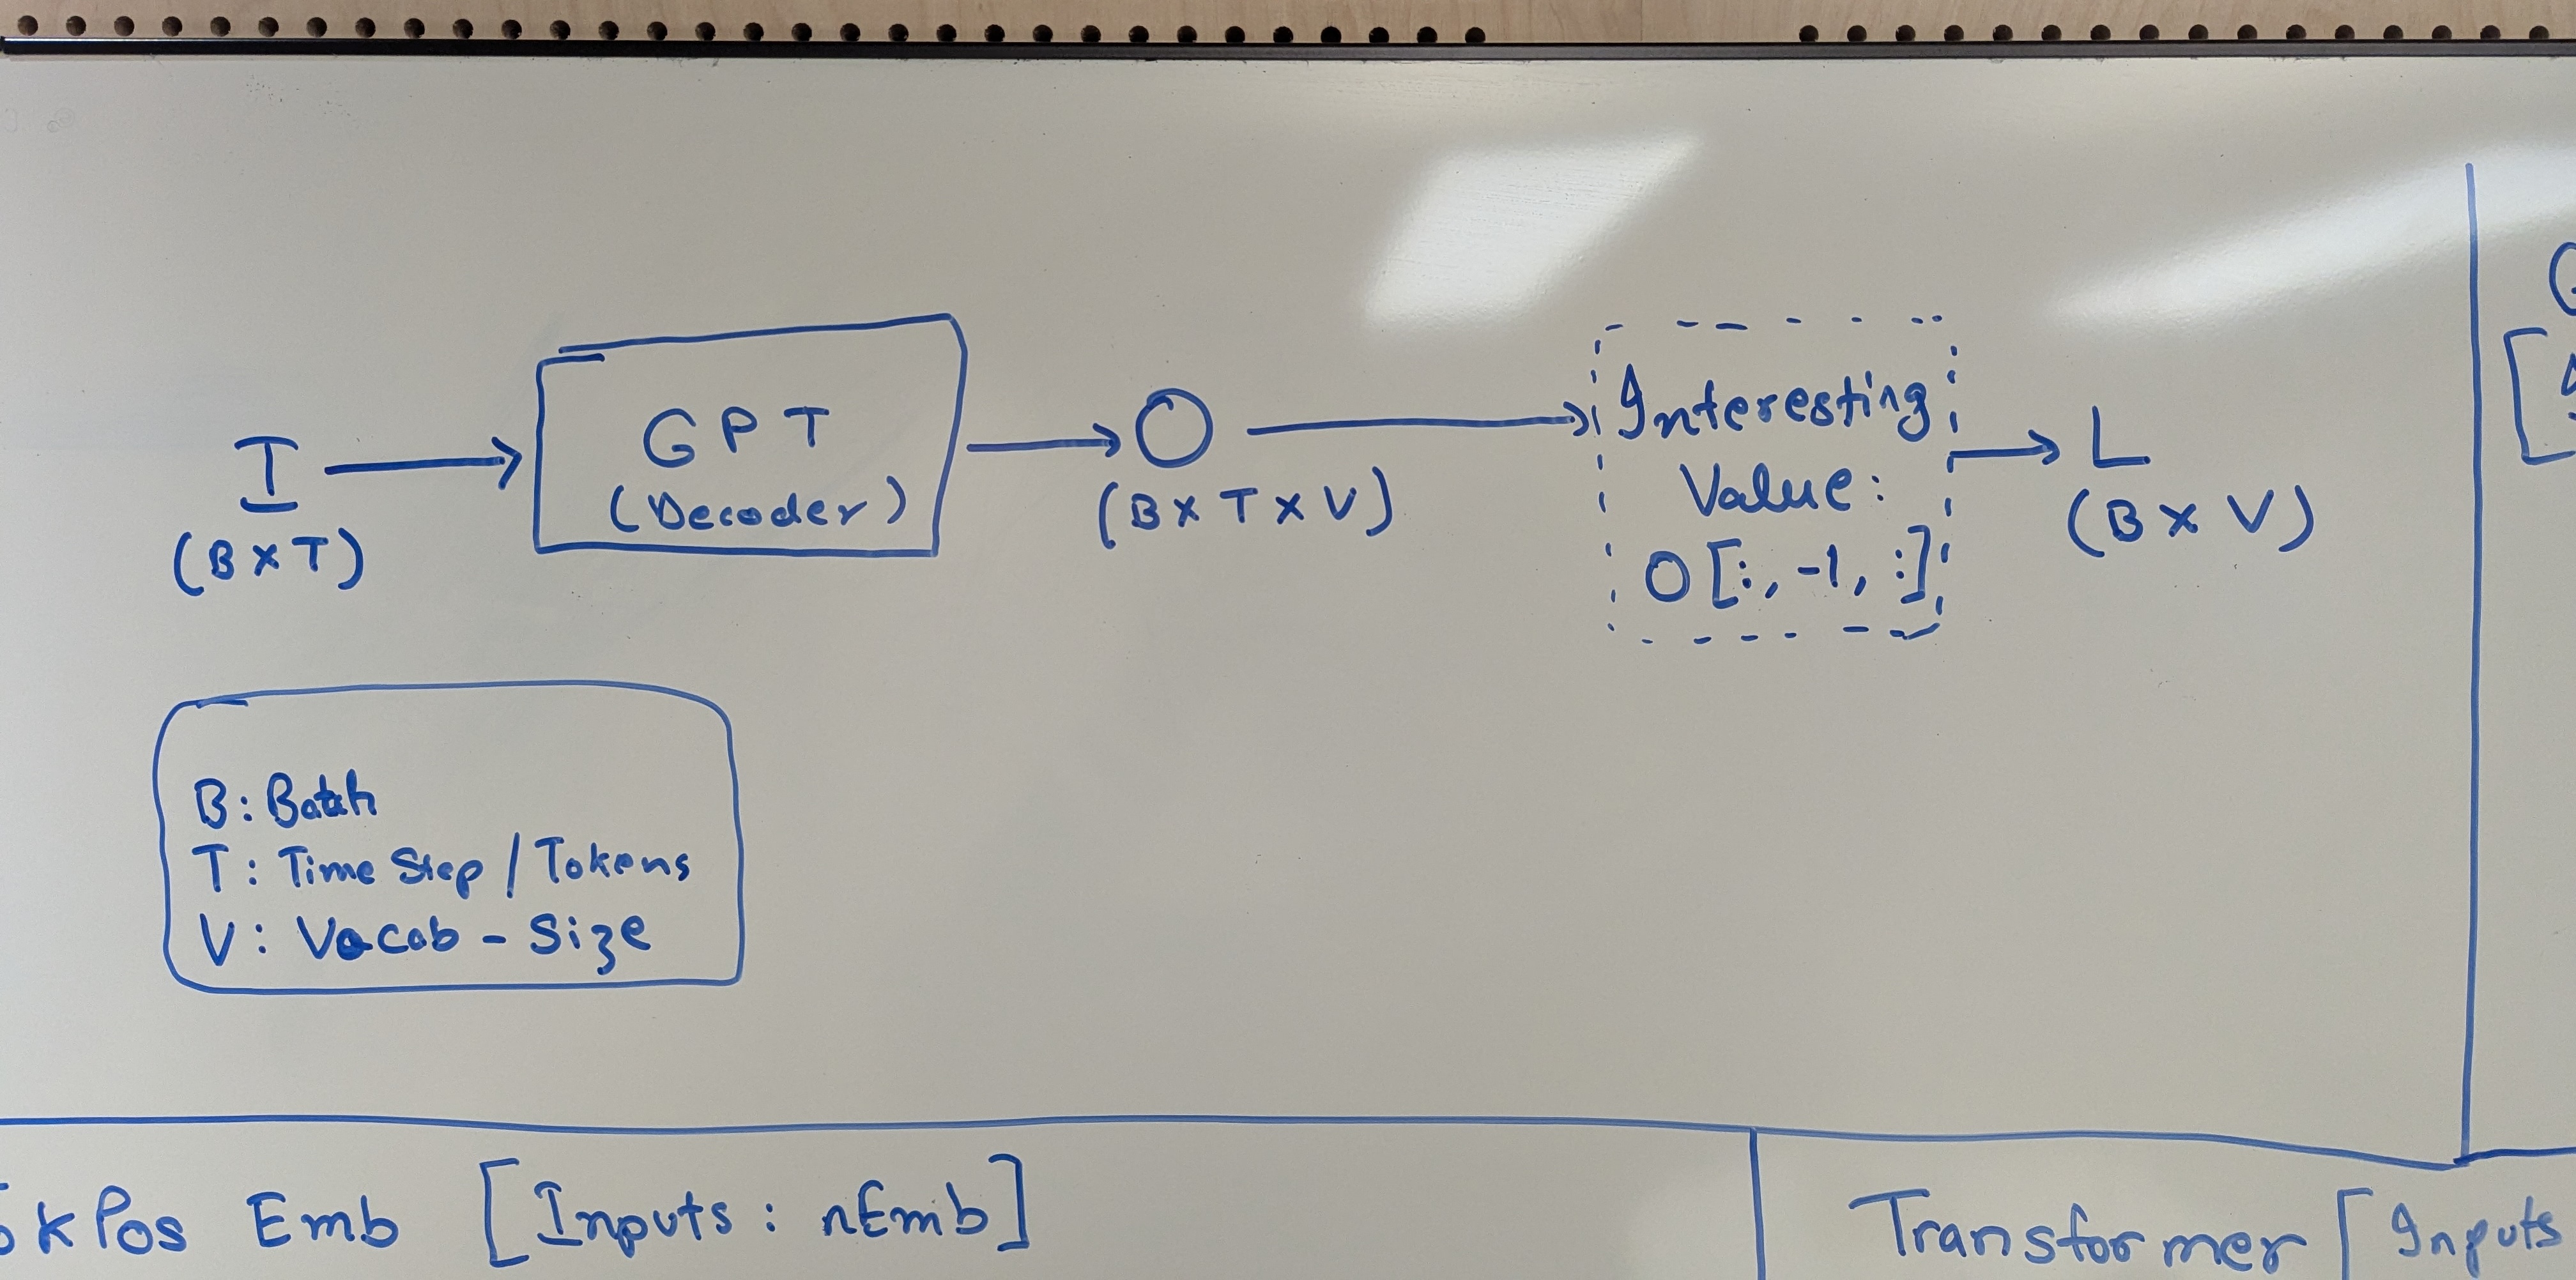 I
(B×T)
GPT
(Decoder)
O
(B×T×V)
Interesting
Value:
O[:, -1, :]
L
(B×V)
B: Batch
T: Time Step / Tokens
V: Vocab - Size
kPos Emb [Inputs: nEmb]
Transformer [Inputs